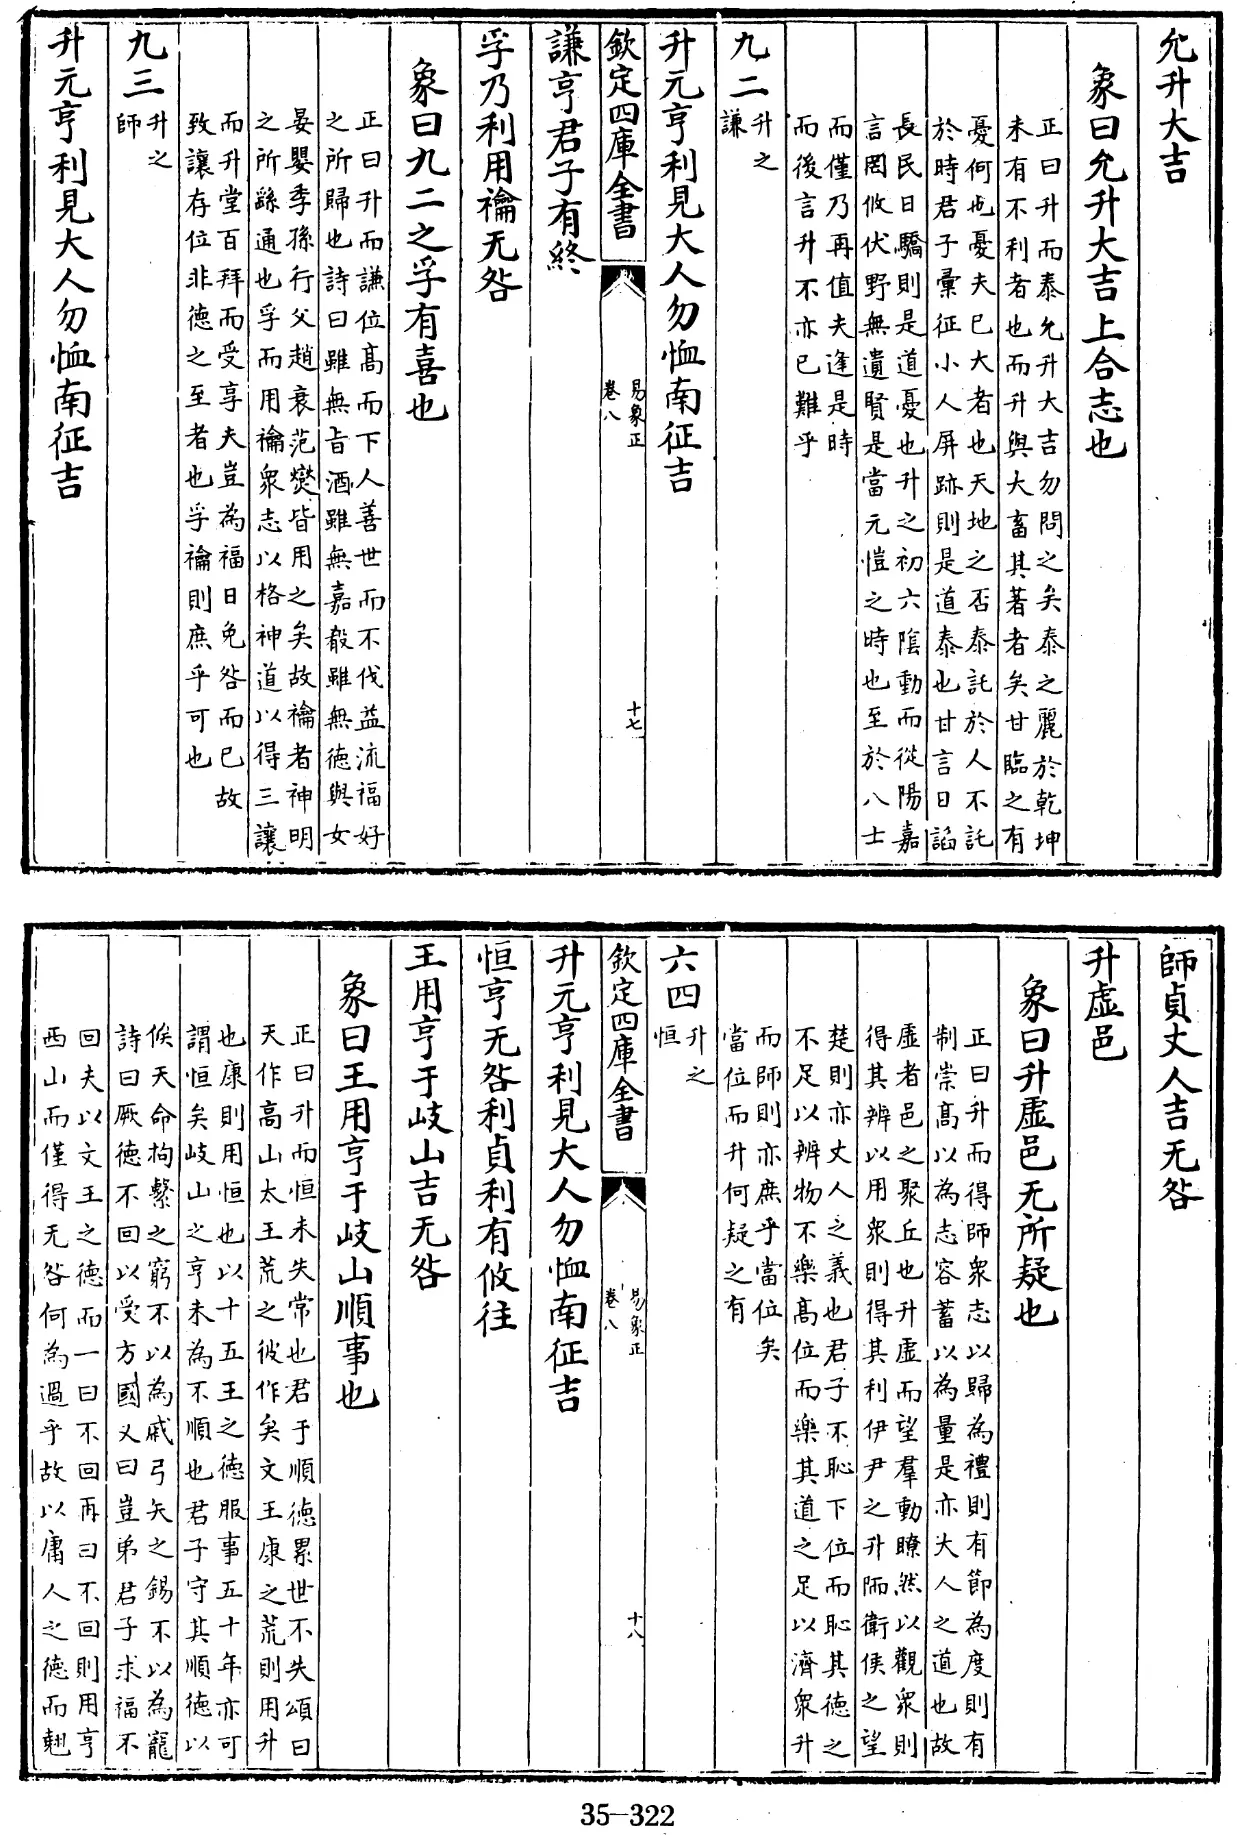 允升大吉
象曰允升大吉上合志也
正曰升而泰允升大吉勿問之矣泰之麗於乾坤
未有不利者也而升與大畜其著者矣甘臨之有
憂何也憂夫已大者也天地之否泰託於人不託
於時君子彙征小人屏跡則是道泰也甘言日謟
長民日驕則是道憂也升之初六陰動而從陽嘉
言罔攸伏野無遺賢是當元愷之時也至於八士
而僅乃再值夫逢是時
而後言升不亦已難乎
九二
升之
謙
升元亨利見大人勿恤南征吉
欽定四庫全書
易象正
卷八
十七
謙亨君子有終
孚乃利用禴无咎
象曰九二之孚有喜也
正曰升而謙位髙而下人善世而不伐益流福好
之所歸也詩曰雖無旨酒雖無嘉殽雖無德與女
晏嬰季孫行父趙衰范爕皆用之矣故禴者神明
之所繇通也孚而用禴衆志以格神道以得三讓
而升堂百拜而受享夫豈為福日免咎而已故
致讓存位非德之至者也孚禴則庶乎可也
九三
升之
師
升元亨利見大人勿恤南征吉
師貞丈人吉无咎
升虛邑
象曰升虛邑无所疑也
正曰升而得師衆志以歸為禮則有節為度則有
制崇髙以為志容蓄以為量是亦大人之道也故
虛者邑之聚丘也升虛而望羣動瞭然以觀衆則
得其辨以用衆則得其利伊尹之升陑衛侯之望
楚則亦丈人之義也君子不恥下位而恥其德之
不足以辨物不樂髙位而樂其道之足以濟衆升
而師則亦庶乎當位矣
當位而升何疑之有
六四
升之
恒
升元亨利見大人勿恤南征吉
欽定四庫全書
易象正
卷八
十八
恒亨无咎利貞利有攸往
王用亨于岐山吉无咎
象曰王用亨于岐山順事也
正曰升而恒未失常也君于順德累世不失頌曰
天作高山太王荒之彼作矣文王康之荒則用升
也康則用恒也以十五王之德服事五十年亦可
謂恒矣岐山之亨未為不順也君子守其順德以
俟天命拘繫之窮不以為戚弓矢之錫不以為寵
詩曰厥德不回以受方國又曰豈弟君子求福不
回夫以文王之德而一曰不回再曰不回則用亨
西山而僅得无咎何為過乎故以庸人之德而翹
35-322